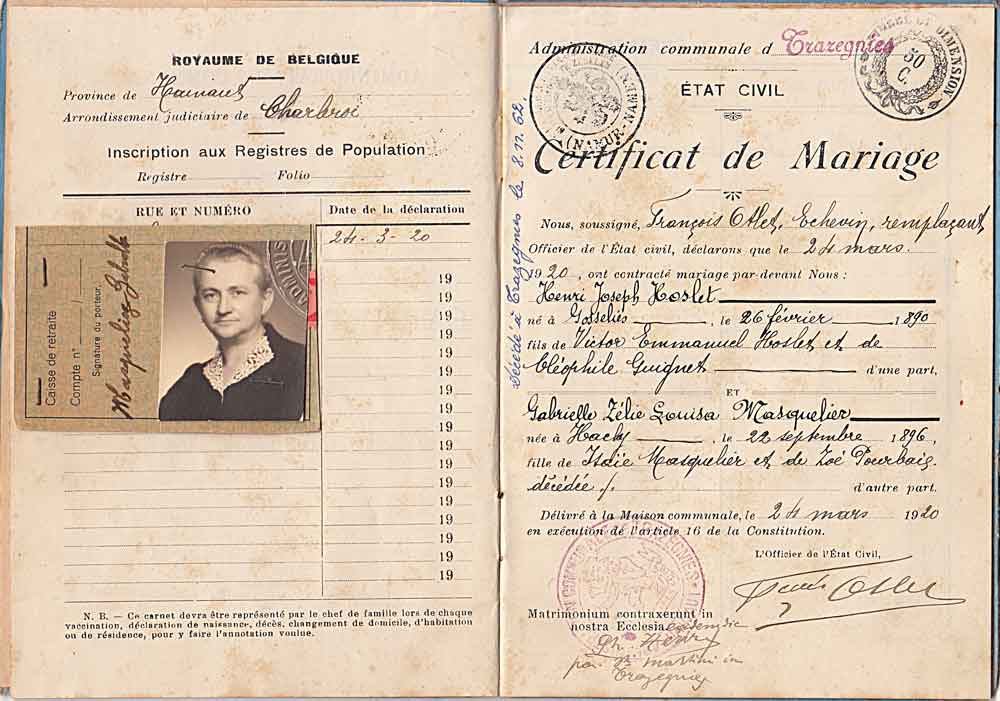 ROYAUME DE BELGIQUE
Province de Hainaut
Arrondissement judiciaire de Charleroi
Inscription aux Registres de Population
Registre Folio
RUE ET NUMÉRO Date de la déclaration
24-3-20
19
19
19
19
19
19
19
19
19
19
19
19
19
19
19
19
19
Caisse de retraite
Compte n° /
Signature du porteur,
Masquelier
N. B. — Ce carnet devra être représenté par le chef de famille lors de chaque
vaccination, déclaration de naissance, décès, changement de domicile, d'habitation
ou de résidence, pour y faire l'annotation voulue.
Administration communale d Trazegnies
DIMENSION
50
C.
(NAMUR-NAMEN)
ÉTAT CIVIL
Certificat de Mariage
Décédé à Trazegnies le 8.11.62.
Nous, soussigné, François Otlet, Echevin, remplaçant
Officier de l'État civil, déclarons que le 24 mars.
1920, ont contracté mariage par-devant Nous :
Henri Joseph Hoslet
né à Gosselies, le 26 février 1890
fils de Victor Emmanuel Hoslet et de
Cléophile Guignet d'une part,
ET
Gabrielle Zélie Louisa Masquelier
née à Hachy, le 22 septembre 1896,
fille de Isaïe Masquelier et de Zoé Pourbaix.
décédée /. d'autre part.
Délivré à la Maison communale, le 24 mars 1920
en exécution de l'article 16 de la Constitution.
L'Officier de l'État Civil,
Otlet
Matrimonium contraxerunt in
nostra Ecclesia eademdie
Henry
martini in
Trazegnies